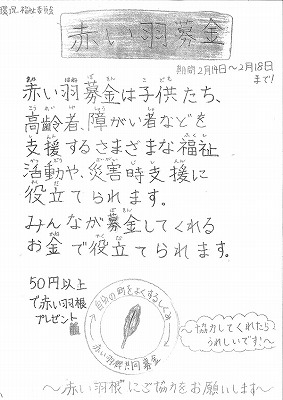 環境福祉委員会
赤い羽募金
期間2月14日～2月18日
まで!
赤い羽募金は子供たち、
高齢者、障がい者などを
支援するさまざまな福祉
活動や、災害時支援に
役立てられます。
みんなが募金してくれる
お金で役立てられます。
50円以上
で赤い羽根
プレゼント
自分の町をよくするしくみ
赤い羽根共同募金
～協力してくれたら
うれしいです!～
～赤い羽根にご協力をお願いします～